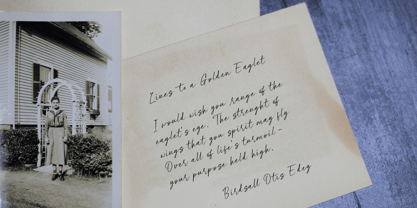 Lines to a Golden Eaglet
I would wish you range of the
eaglet's eye. The strenght of
wings that you spirit may fly.
Over all of life's turmoil -
your purpose held high.
Birdsall Otis Edey